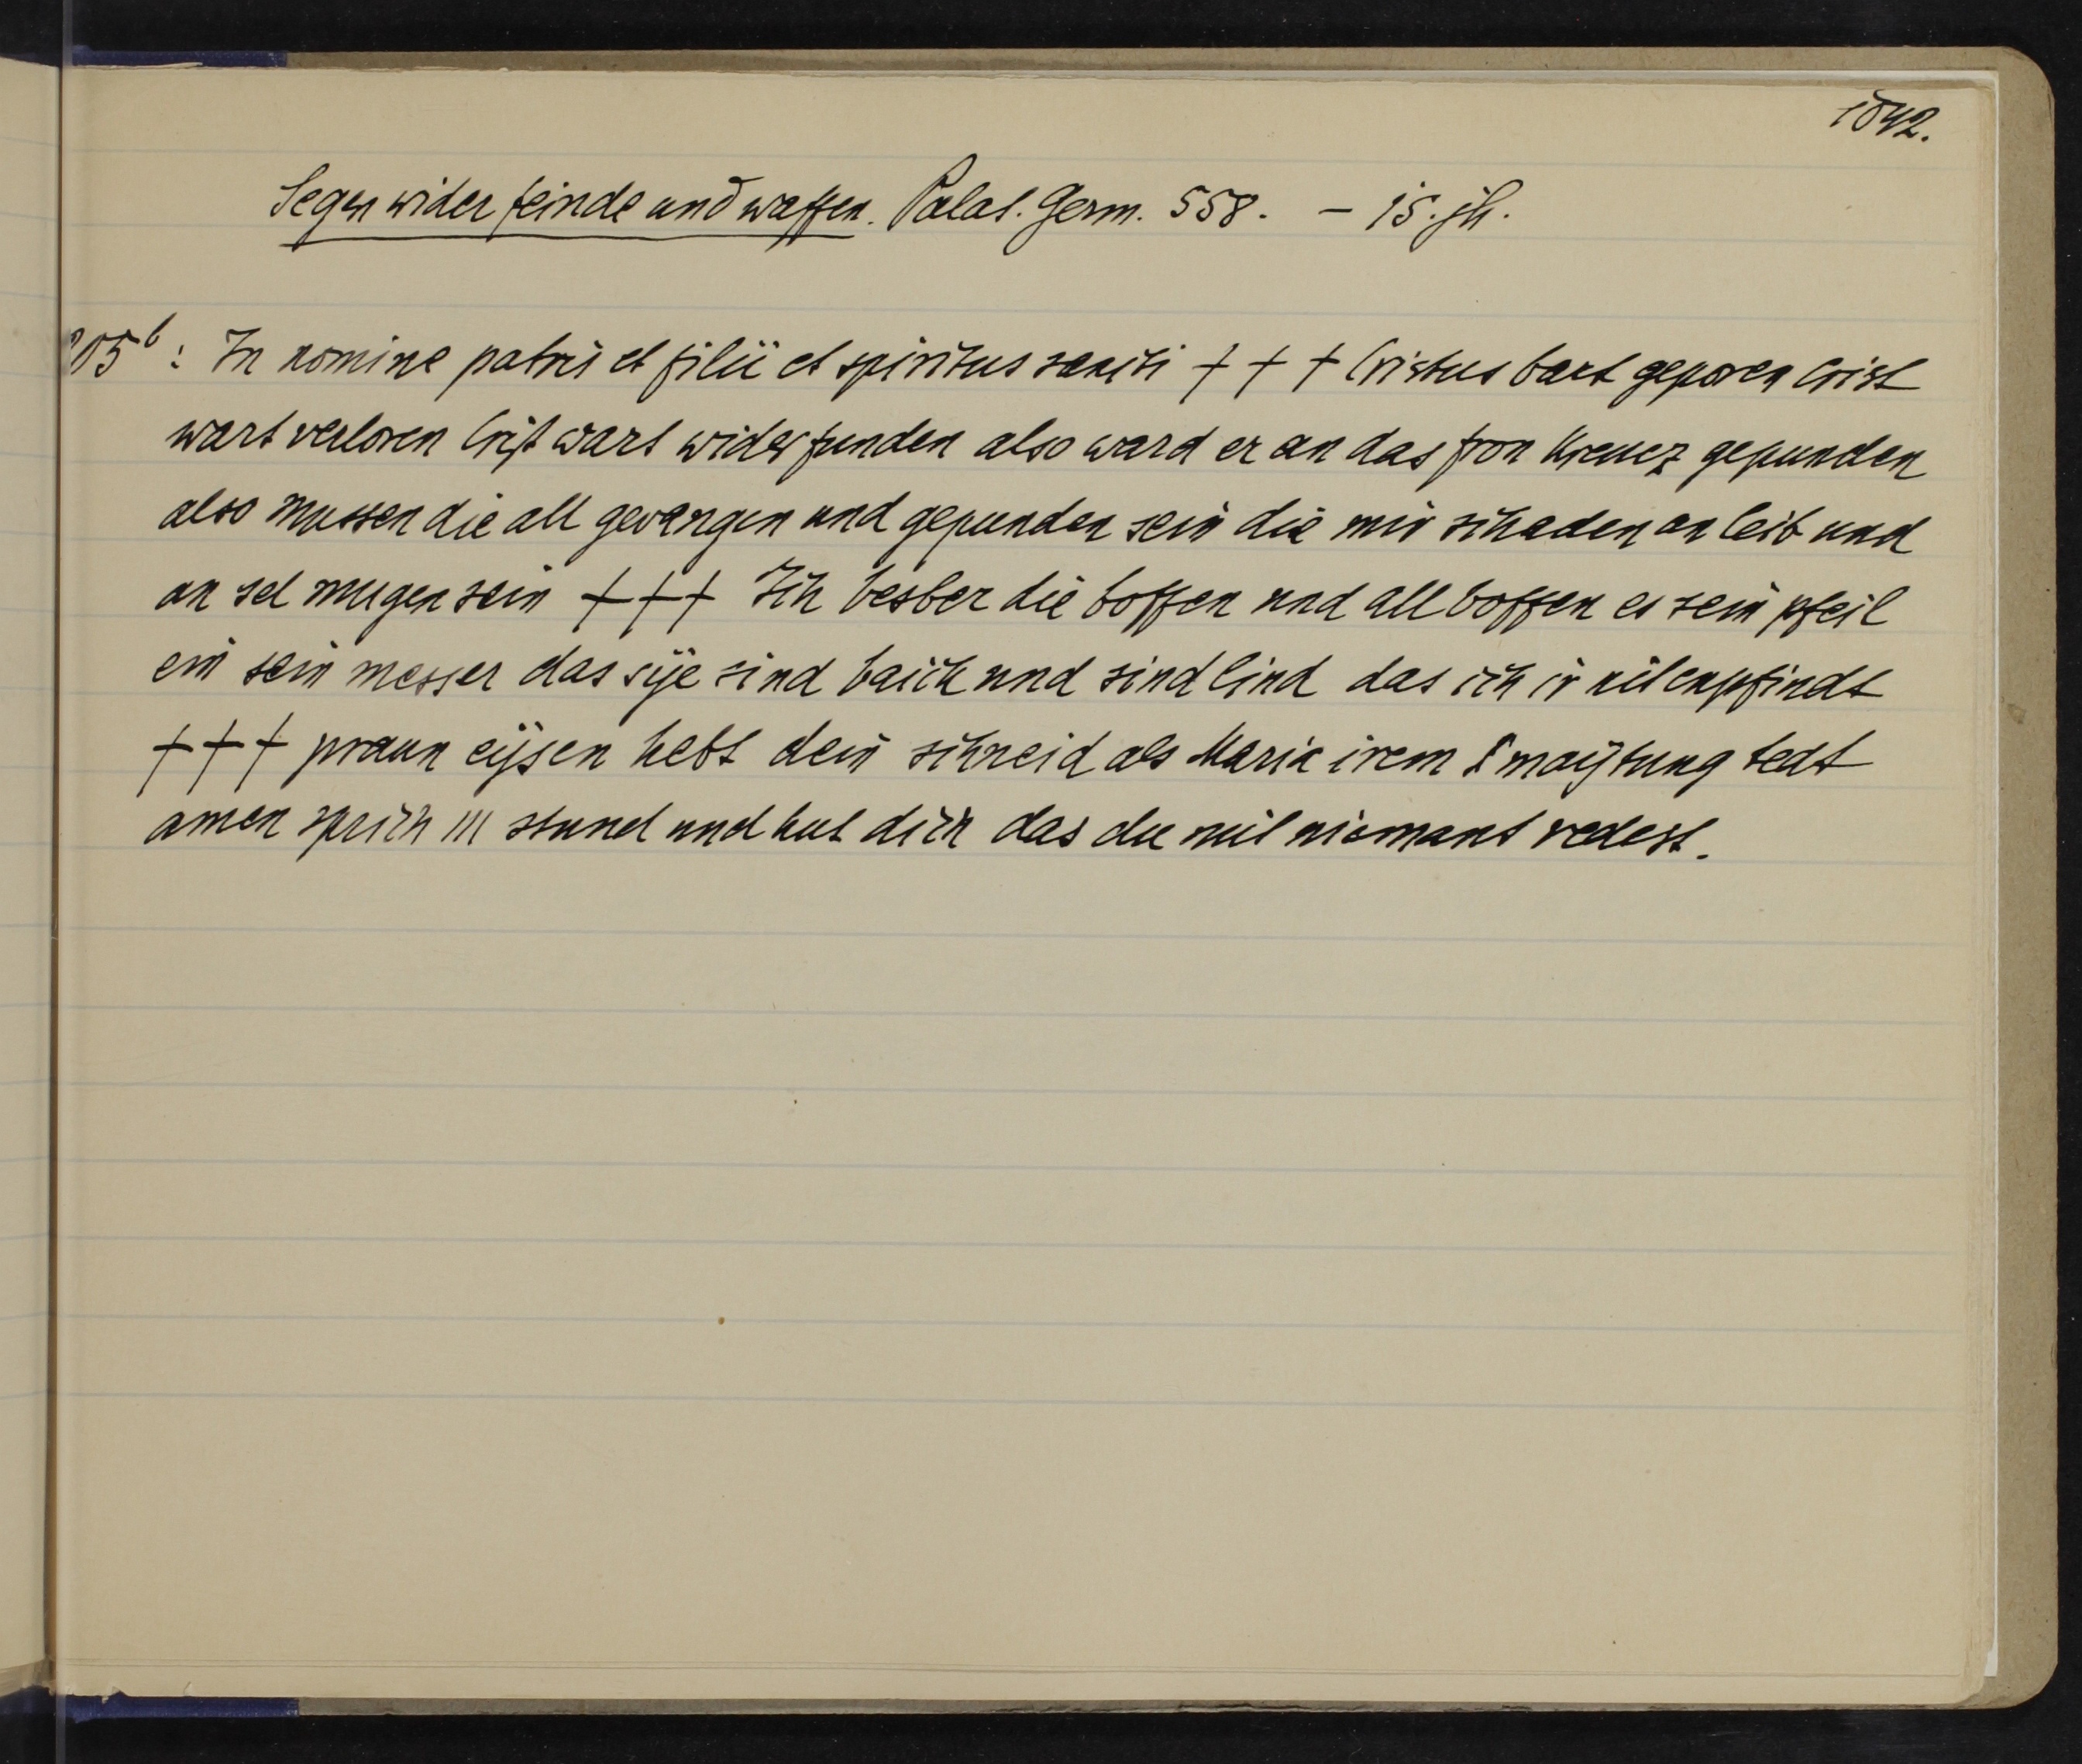 1842.
Segen wider feinde und waffen. Palat. Germ. 558. – 15. jh.
205b: In nomine patris et filii et spiritus sancti + + + Cristus bart geporen Crist
wart verloren Crist wart wider funden also ward er an das fron kreucz gepunden
also mussen die all gevangen und gepunden sein die mir schaden an leib und
an sel mugen sein + + + Ich besber die boffen und all boffen es sein pfeil
ein sein messer das sye sind baich und sind lind das ich ir nit enpfindt
+ + + praun eysen hebt dein schneid als Maria irem maytung tedt
amen sprich III stund und hut dich das du mit niemant redest.